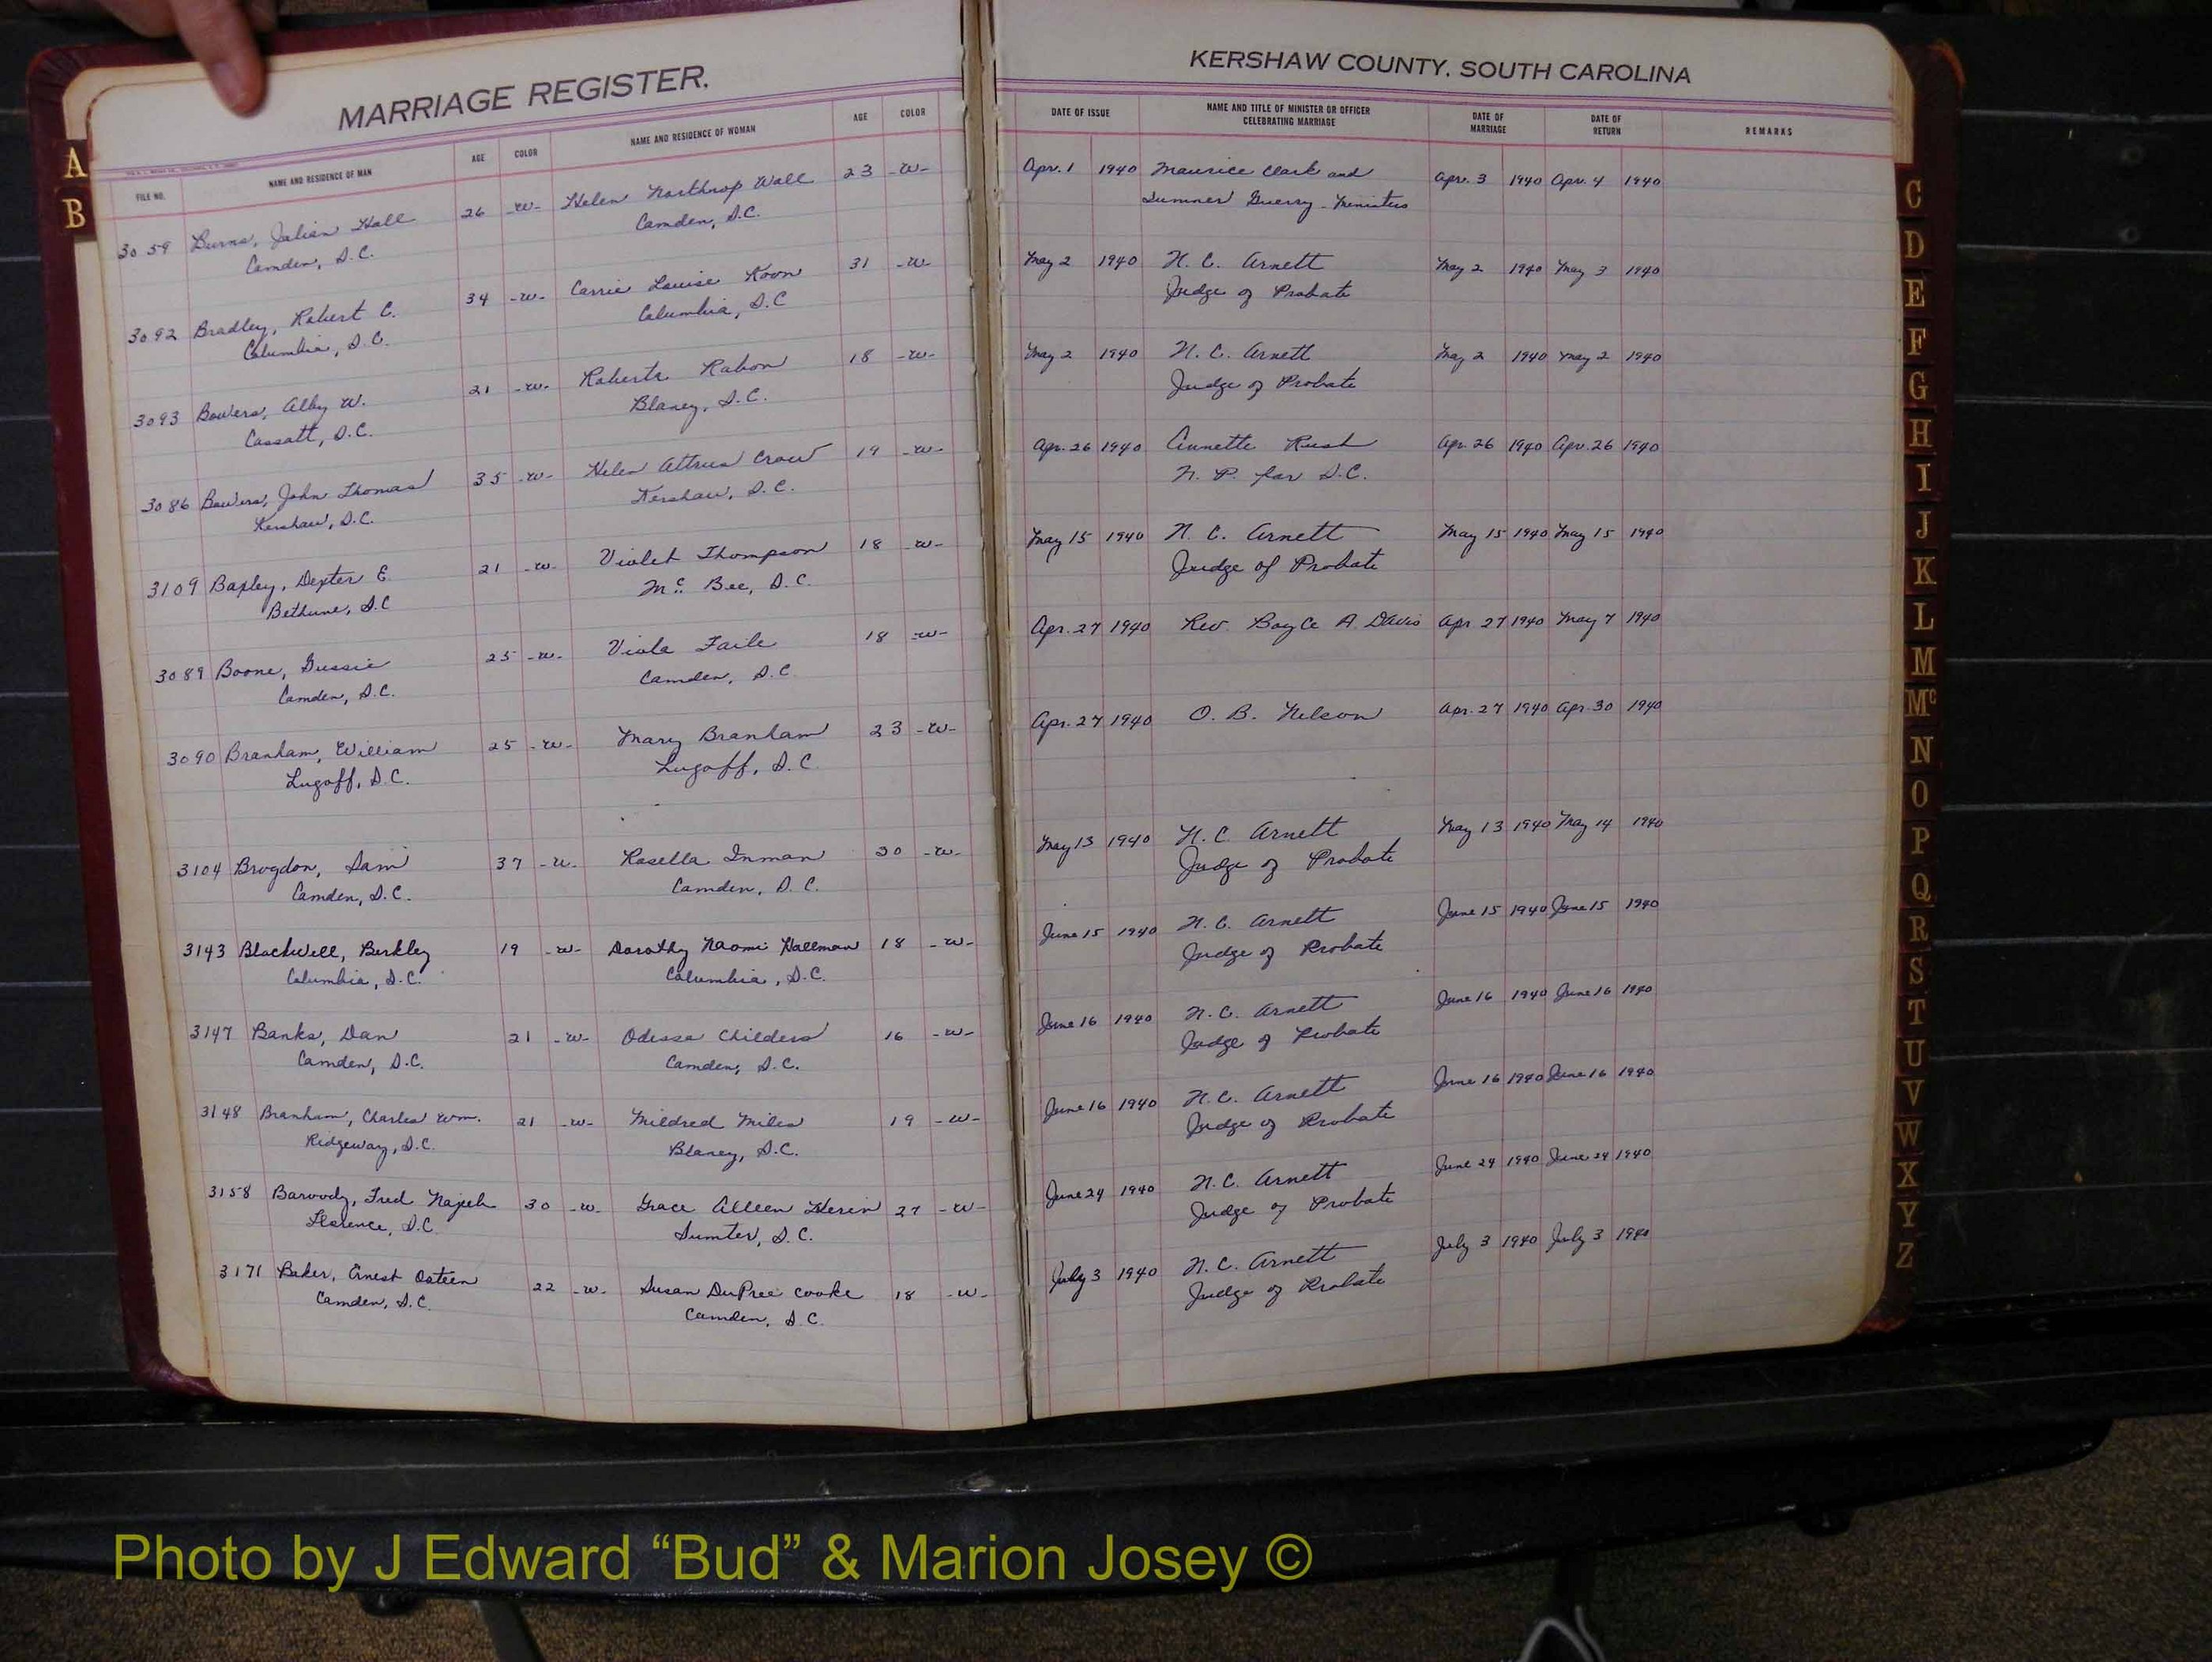 MARRIAGE REGISTER.
FILE NO. NAME AND RESIDENCE OF MAN AGE COLOR NAME AND RESIDENCE OF WOMAN AGE COLOR
3059 Burns, Julian Hall 26 -W- Helen Northrop Wall 23 -W-
Camden, S.C. Camden, S.C.
3092 Bradley, Robert C. 34 -W- Carrie Louise Koon 31 -W-
Columbia, S.C. Columbia, S.C
3093 Bowers, Alby W. 21 -W- Roberta Rabon 18 -W-
Cassatt, S.C. Blaney, S.C.
3086 Bowers, John Thomas 35 -W- Helen Crow 19 -W-
Kershaw, S.C. Kershaw, S.C.
3109 Baxley, Dexter E. 21 -W- Violet Thompson 18 -W-
Bethune, S.C Mc Bee, S.C.
3089 Boone, Gussie 25 -W- Viola Faile 18 -W-
Camden, S.C. Camden, S.C
3090 Branham, William 25 -W- Mary Branham 23 -W-
Lugoff, S.C. Lugoff, S.C
3104 Brogdon, Sam 37 -W- Rosella Inman 30 -W-
Camden, S.C. Camden, S.C.
3143 Blackwell, Berkley 19 -W- Dorothy Naomi Hallman 18 -W-
Columbia, S.C. Columbia, S.C.
3147 Banks, Dan 21 -W- Odessa Childers 16 -W-
Camden, S.C. Camden, S.C.
3148 Branham, Charles Wm. 21 -W- Mildred Miles 19 -W-
Ridgeway, S.C. Blaney, S.C.
3158 Baroody, Fred Najeeb 30 -W- Grace Alleen 27 -W-
Florence, S.C. Sumter, S.C.
3171 Baker, Ernest Osteen 22 -W- Susan DuPree Cooke 18 -W-
Camden, S.C. Camden, S.C.
KERSHAW COUNTY, SOUTH CAROLINA
DATE OF ISSUE NAME AND TITLE OF MINISTER OR OFFICER CELEBRATING MARRIAGE DATE OF MARRIAGE DATE OF RETURN REMARKS
Apr. 1 1940 Maurice Clark and Apr. 3 1940 Apr. 4 1940
Sumner Guerry - Ministers
May 2 1940 N. C. Arnett May 2 1940 May 3 1940
Judge of Probate
May 2 1940 N. C. Arnett May 2 1940 May 2 1940
Judge of Probate
Apr. 26 1940 Annette Rush Apr. 26 1940 Apr. 26 1940
N. P. for S.C.
May 15 1940 N. C. Arnett May 15 1940 May 15 1940
Judge of Probate
Apr. 27 1940 Rev. Boyce A. Davis Apr 27 1940 May 7 1940
Apr. 27 1940 O. B. Nelson Apr. 27 1940 Apr. 30 1940
May 13 1940 N. C. Arnett May 13 1940 May 14 1940
Judge of Probate
June 15 1940 N. C. Arnett June 15 1940 June 15 1940
Judge of Probate
June 16 1940 N. C. Arnett June 16 1940 June 16 1940
Judge of Probate
June 16 1940 N. C. Arnett June 16 1940 June 16 1940
Judge of Probate
June 24 1940 N. C. Arnett June 24 1940 June 24 1940
Judge of Probate
July 3 1940 N. C. Arnett July 3 1940 July 3 1940
Judge of Probate
A
B
C
D
E
F
G
H
I
J
K
L
M
Mc
N
O
P
Q
R
S
T
U
V
W
X
Y
Z
Photo by J Edward “Bud” & Marion Josey ©